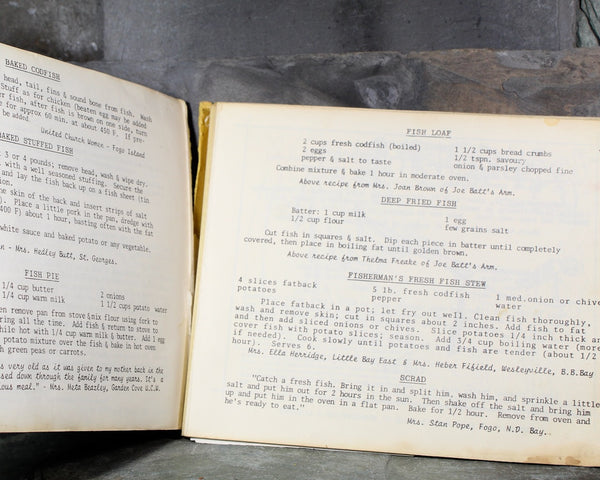 BAKED CODFISH
head, tail, fins & sound bone from fish. Wash
Stuff as for chicken (beaten egg may be added
er fish, after fish is brown on one side, turn
e for approx 60 min. at about 450 F. If pre-
be added
United Church Women - Fogo Island
BAKED STUFFED FISH
3 or 4 pounds; remove head, wash & wipe dry.
with a well seasoned stuffing. Secure the
and lay the fish back up on a fish sheet (tin
ion.
e skin of the back and insert strips of salt
). Place a little pork in the pan, dredge with
400 F) about 1 hour, basting often with the fat
white sauce and baked potato or any vegetable.
n - Mrs. Hedley Butt, St. Georges.
FISH PIE
1/4 cup butter 2 onions
1/4 cup warm milk 1 1/2 cups potato water
en remove pan from stove & mix flour using fork to
rring all the time. Add fish & return to stove to
while hot with 1/4 cup warm milk & butter. Add 1 egg
potato mixture over the fish & bake in hot oven
h green peas or carrots.
s very old as it was given to my mother back in the
sed down through the family for many years. It's a
ious meal." - Mrs. Meta Beazley, Garden Cove U.C.W.
FISH LOAF
2 cups fresh codfish (boiled) 1 1/2 cups bread crumbs
2 eggs 1/2 tspn. savoury
pepper & salt to taste onion & parsley chopped fine
Combine mixture & bake 1 hour in moderate oven.
Above recipe from Mrs. Joan Brown of Joe Batt's Arm.
DEEP FRIED FISH
Batter: 1 cup milk 1 egg
1/2 cup flour few grains salt
Cut fish in squares & salt. Dip each piece in batter until completely
covered, then place in boiling fat until golden brown.
Above recipe from Thelma Freake of Joe Batt's Arm.
FISHERMAN'S FRESH FISH STEW
4 slices fatback 5 lb. fresh codfish 1 med.onion or chive
potatoes pepper water
Place fatback in a pot; let fry out well. Clean fish thoroughly,
wash and remove skin; cut in squares about 2 inches. Add fish to fat
and then add sliced onions or chives. Slice potatoes 1/4 inch thick an
cover fish with potato slices; season. Add 3/4 cup boiling water (more
if needed). Cook slowly until potatoes and fish are tender (about 1/2
hour). Serves 6.
Mrs. Ella Herridge, Little Bay East & Mrs. Heber Fifield, Wesleyville, B.B.Bay
SCRAD
"Catch a fresh fish, Bring it in and split him, wash him, and sprinkle a little
salt and put him out for 2 hours in the sun. Then shake off the salt and bring him
up and put him in the oven in a flat pan. Bake for 1/2 hour. Remove from oven and
he's ready to eat."
Mrs. Stan Pope, Fogo, N.D. Bay.